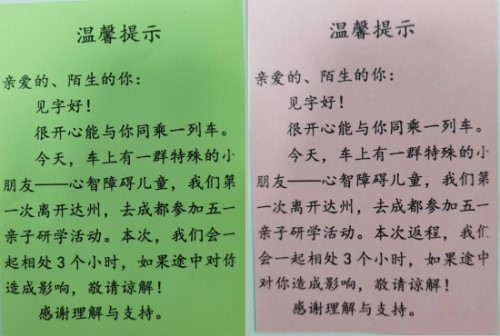 温馨提示
亲爱的、陌生的你：
见字好！
很开心能与你同乘一列车。
今天，车上有一群特殊的小
朋友——心智障碍儿童，我们第
一次离开达州，去成都参加五一
亲子研学活动。本次，我们会一
起相处3个小时，如果途中对你
造成影响，敬请谅解！
感谢理解与支持。
温馨提示
亲爱的、陌生的你：
见字好！
很开心能与你同乘一列车。
今天，车上有一群特殊的小
朋友——心智障碍儿童，我们第
一次离开达州，去成都参加五一
亲子研学活动。本次返程，我们
会一起相处3个小时，如果途中
对你造成影响，敬请谅解！
感谢理解与支持。